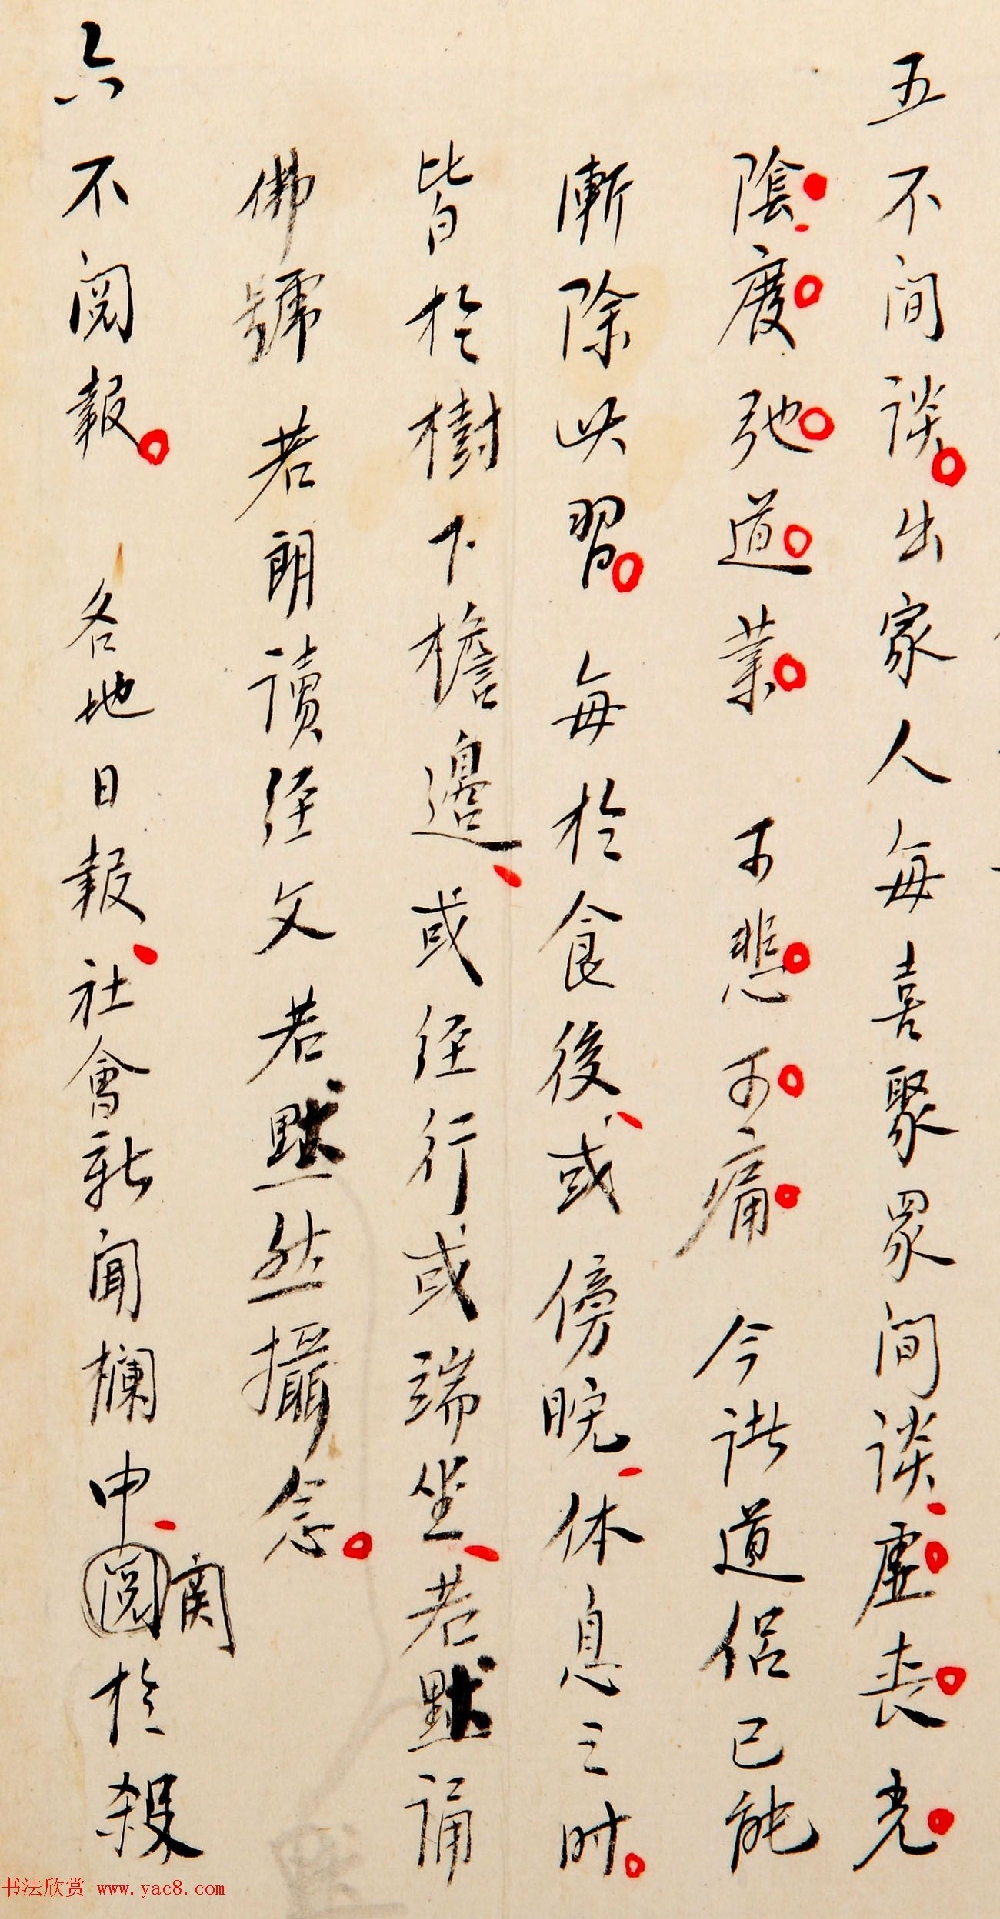 五不间谈。出家人每喜聚眾间谈、虛喪光
陰、廢弛道業可悲可痛今諸道侣已能
漸除此習。每於食後、或傍晚、休息之时。
皆於樹下檐邊、或经行或端坐、若默誦
佛號若朗讀经文若默然攝念。
六不阅報。各地日報、社會新闻欄中、阅関於殺
书法欣赏 www.yac8.com